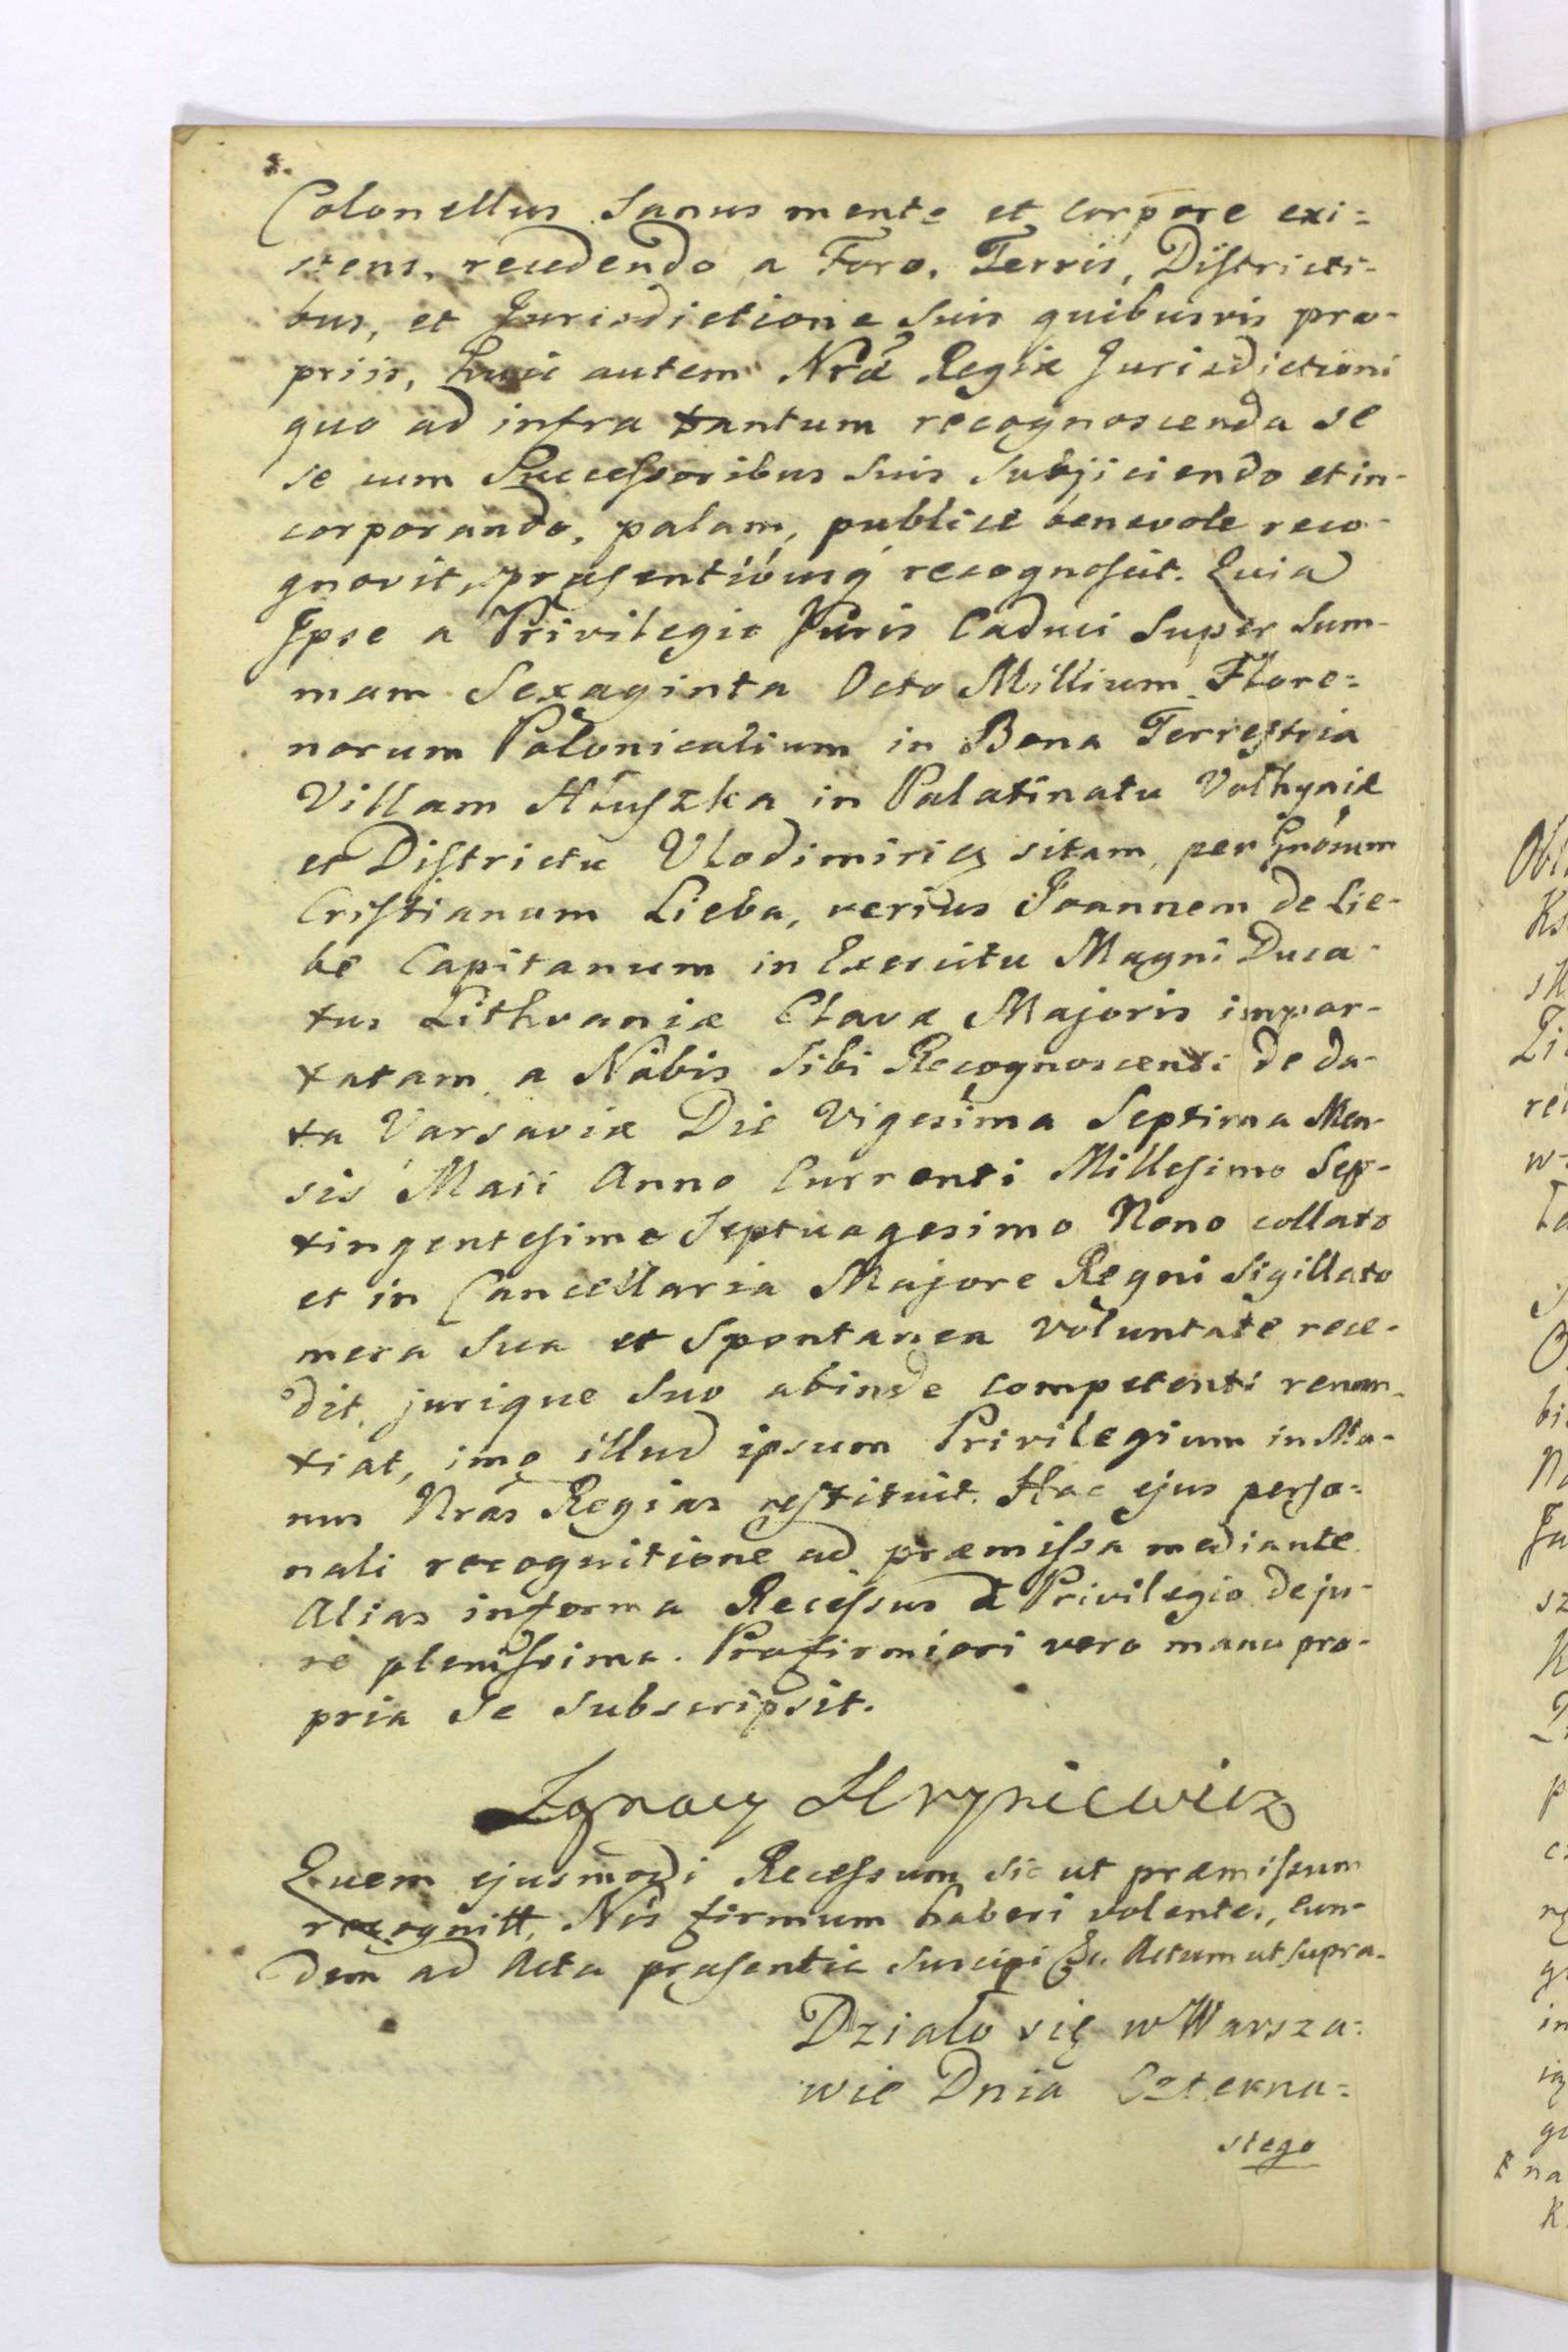 Colonellus Sanus mente et corpore exi=
stens, recedendo a Foro, Terris, Districti-
bus, et Jurisdictione Suis quibusvis pro-
priis, huic autem Nrae Regiæ Jurisdictioni
quo ad infra tantum recognoscenda se
se cum Successoribus Suis Subjiciendo et in-
corporando, palam, publice benevole reco-
gnovit, præsentibusq recognoscit. Quia
Ipse a Privilegio Juris Caduci Super Sum-
mam Sexaginta Octo Millium Flore=
norum Polonicalium in Bona Terrestria
Villam Hłuszka in Palatinatu Volhyniæ
et Districtu Vlodimirien sitam, per Gnosum
Cristianum Lieba, verius Joannem de Lie-
be Capitanum in Exercitu Magni Duca-
tus Lithvaniæ Clavæ Majoris impor-
tatam a Nobis Sibi Recognoscenti de da-
ta Varsaviæ Die Vigesima Septima Men-
sis Maii Anno Currenti Millesimo Sep-
tingentesimo Septuagesimo Nono collato
et in Cancellaria Majore Regni Sigillato
mera Sua et Spontanea voluntate rece-
dit, jurique Suo abinde competenti renun-
tiat, imo illud ipsum Privilegium in Ma-
nus Nras Regias restituit. Hac ejus perso=
nali recognitione ad præmissa mediante
Alias in forma Recessus a Privilegio de ju-
re plenissima. Pro firmiori vero manu pro-
pria Se Subscripsit.
Ignacy Hryniewicz
Quem ejusmodi Recessum Sic ut præmissum
recognitt, Nos firmum haberi volentes, eun-
dem ad Acta præsentia Suscipi &c. Actum ut supra.
Działo się w Warsza=
wie Dnia Czterna=
stego